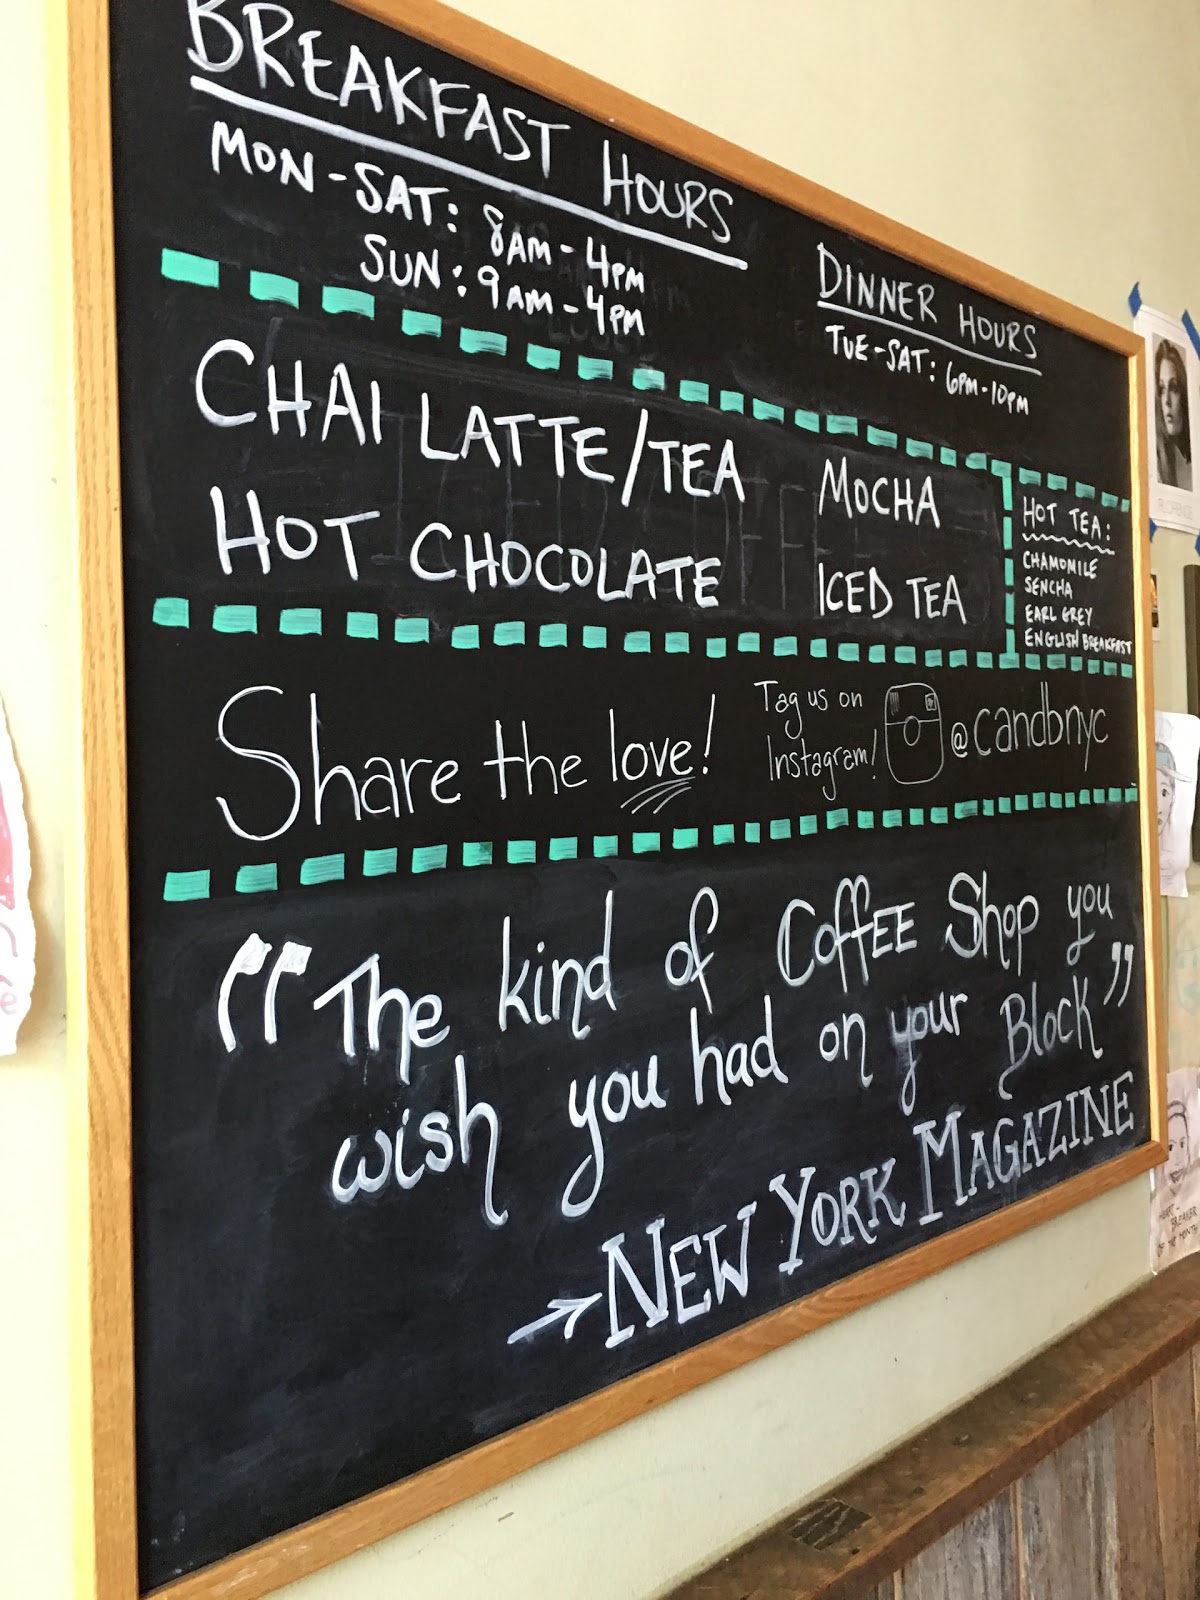 BREAKFAST HOURS
MON-SAT: 8AM-4PM
SUN: 9AM-4PM
DINNER HOURS
TUE-SAT: 6PM-10PM
CHAI LATTE/TEA
HOT CHOCOLATE
MOCHA
ICED TEA
HOT TEA:
CHAMOMILE
SENCHA
EARL GREY
ENGLISH BREAKFAST
Share the love!
Tag us on
Instagram!
@candbnyc
"The kind of CoffEE Shop you
wish you had on your Block"
→NEW YORK MAGAZINE
HEART-
BREAKER
OF THE MONTH